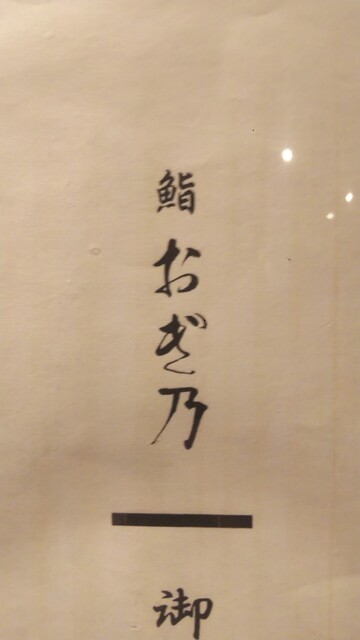 鮨 おぎ乃
御